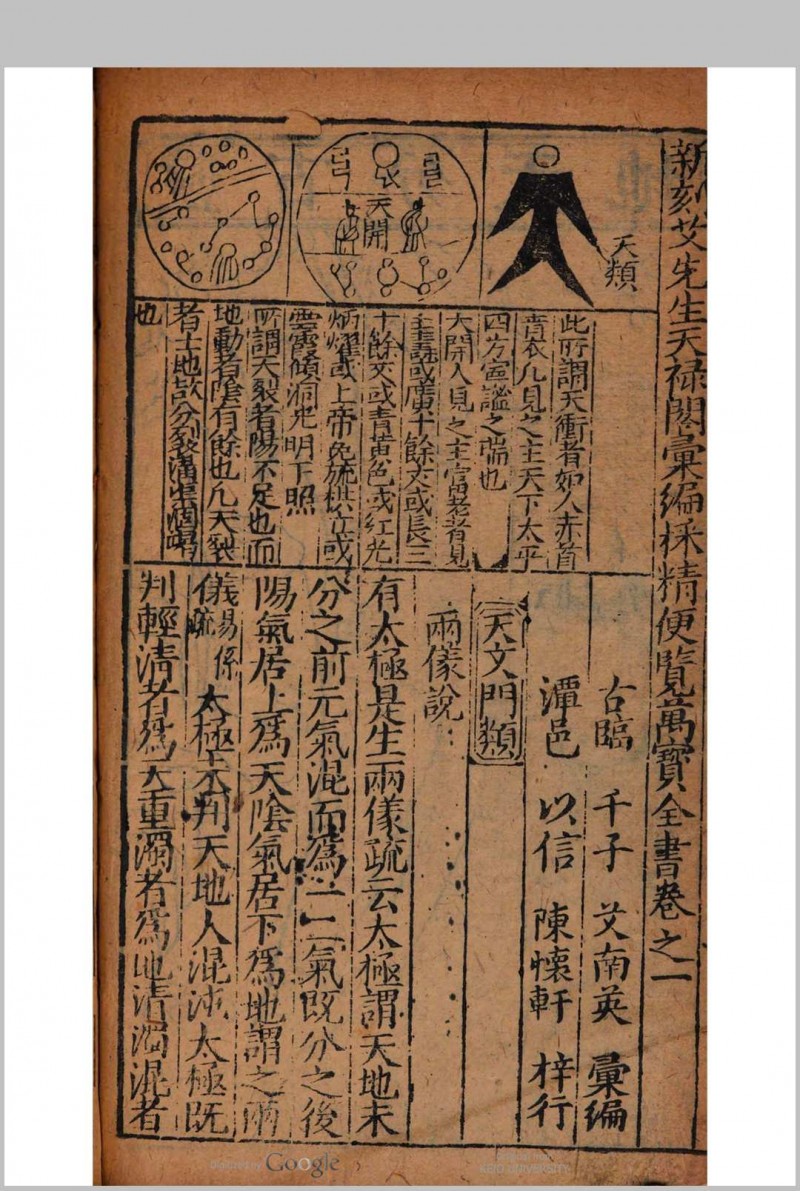 新刻艾先生天禄閣彙編採精便覽萬寶全書卷之一
古臨 千子 艾南英 彙編
潭邑 以信 陳懷軒 梓行
天文門類
兩儀說
有太極是生兩儀疏云太極謂天地未
分之前元氣混而為一二氣既分之後
陽氣居上為天陰氣居下為地謂之兩
儀易係疏 太極未判天地人混沌太極既
判輕清者為天重濁者為地清濁混者
天類
天開
此所謂天衝者如人赤首
青衣凡見之主天下太平
四方寧謐之端也
天開人見之主官留老者見
主壽或廣十餘丈或長三
十餘丈或青黃色或紅光
炳燿或上帝冕旒拱立或
雲霞傾洞光明下照
所謂天裂者陽不足也而
地動者陰有餘也凡天裂
者土地故分裂
也
Digitized by Google
Original from
KEIO UNIVERSITY